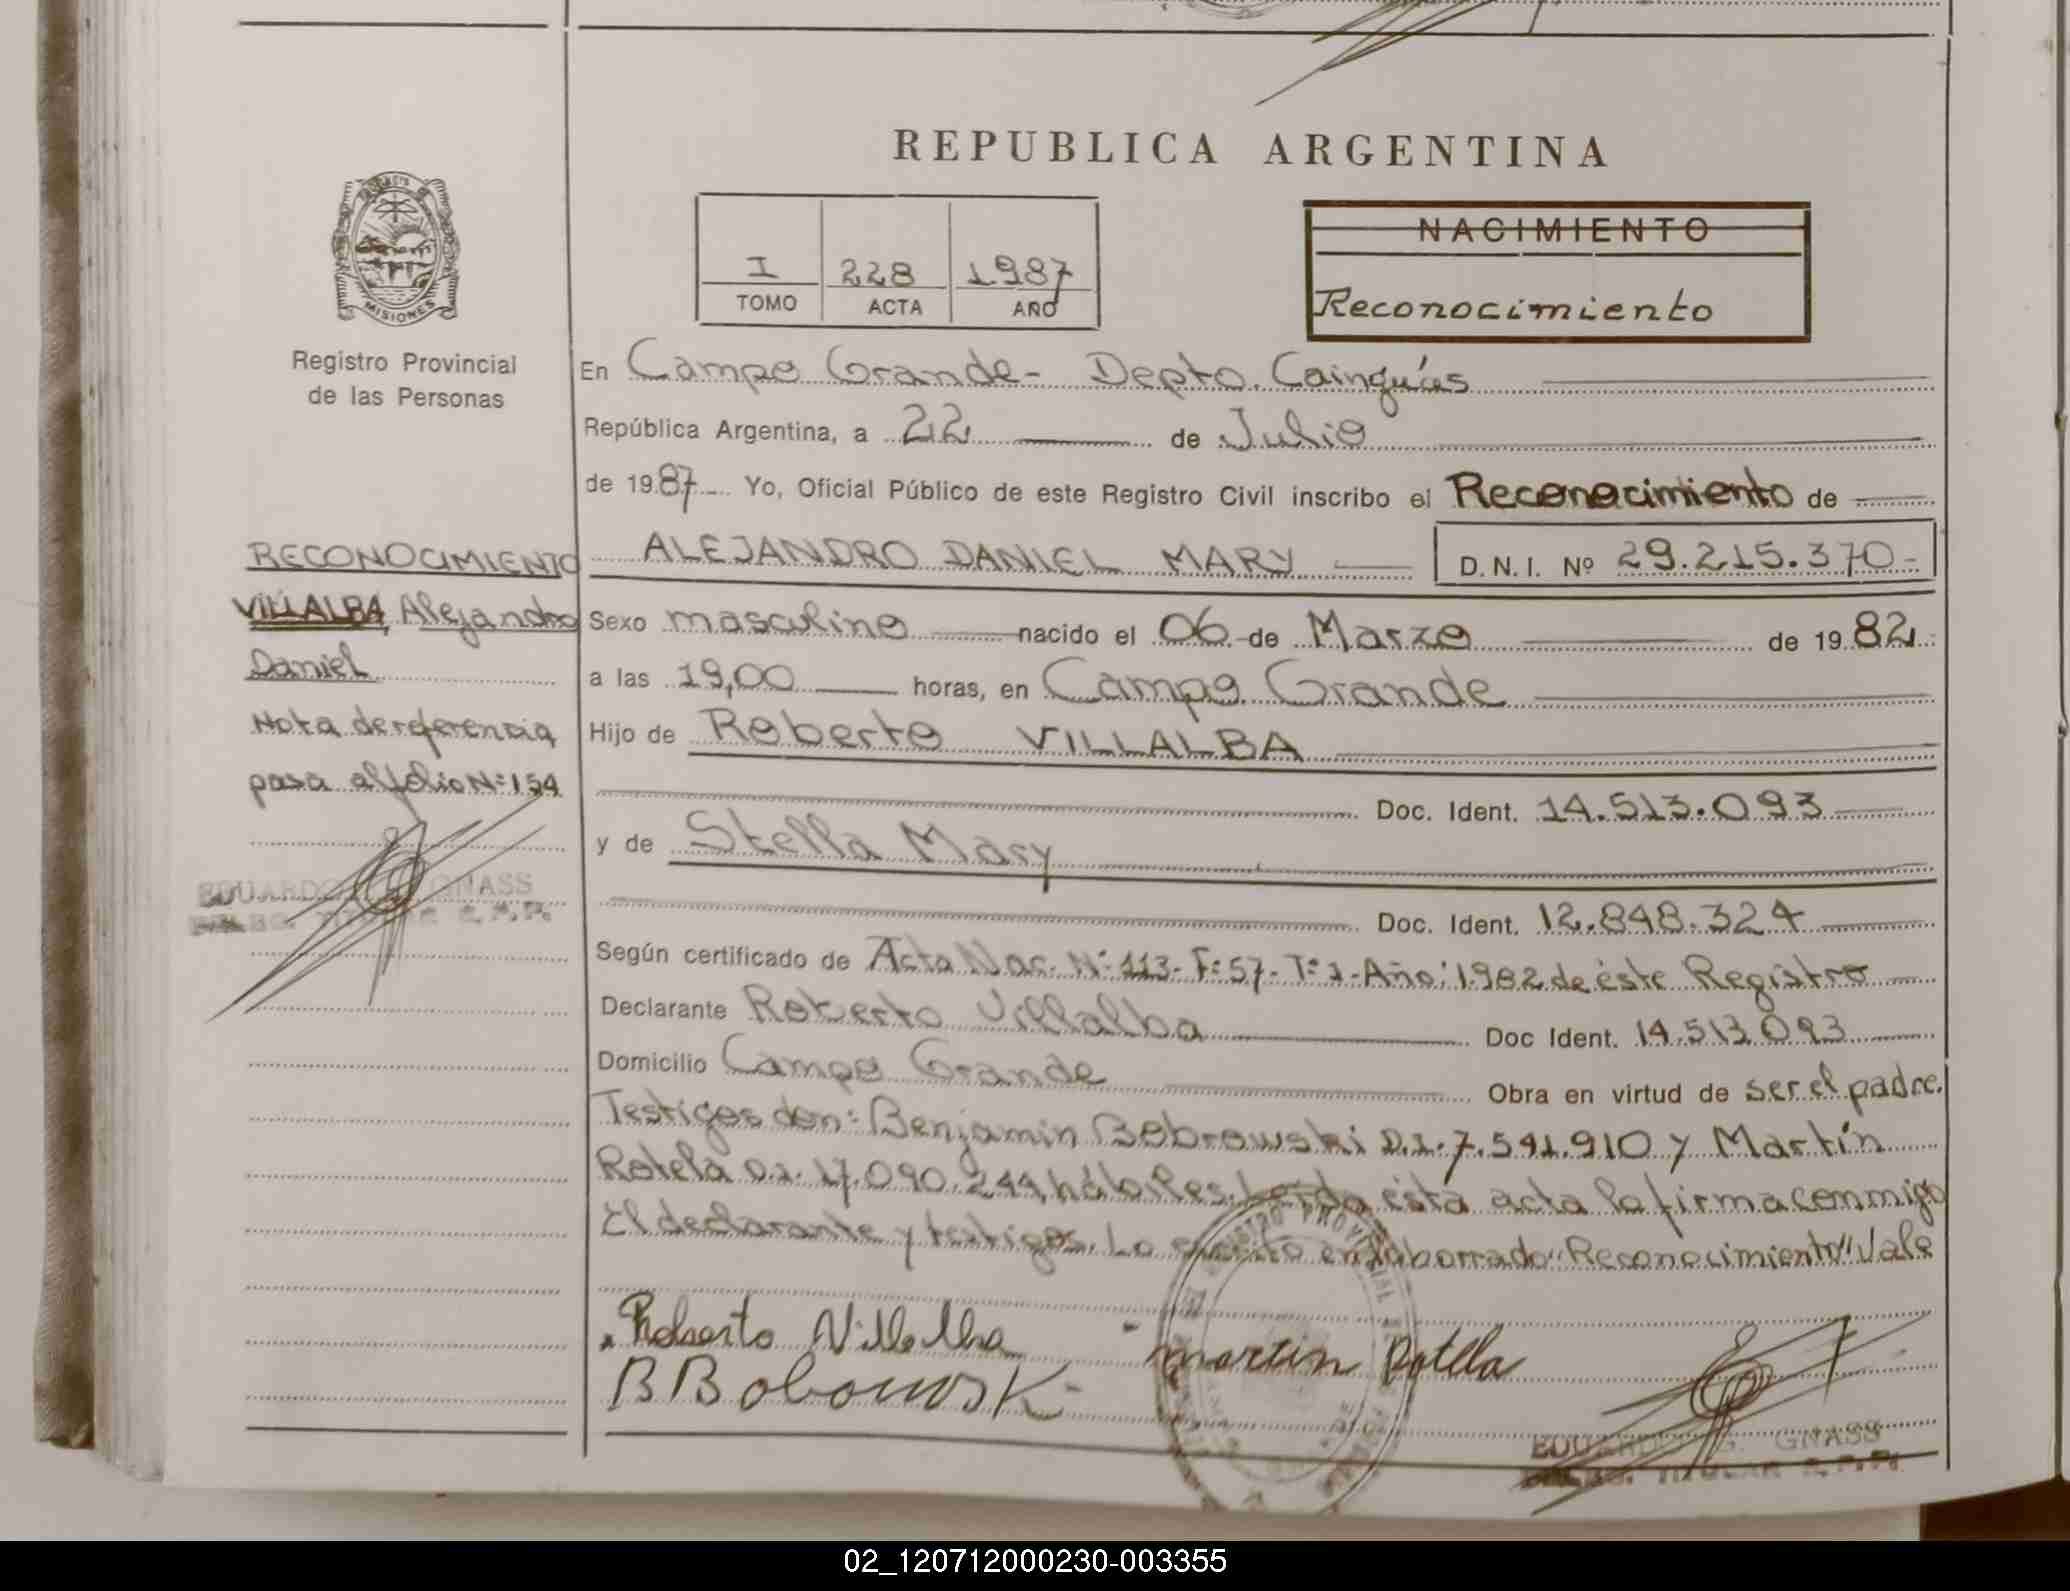 REPUBLICA ARGENTINA
MISIONES
Registro Provincial
de las Personas
I 228 1987
TOMO ACTA AÑO
NACIMIENTO
Reconocimiento
En Campo Grande- Depto. Cainguás
República Argentina, a 22 de Julio
de 1987 Yo, Oficial Público de este Registro Civil inscribo el Reconocimiento de
ALEJANDRO DANIEL MARY D.N.I. Nº 29.215.370-
RECONOCIMIENTO
VILLALBA, Alejandro
Daniel
Nota de referencia
pasa al folio Nº 154
EDUARDO GNASS
Sexo masculino nacido el 06 de Marzo de 1982
a las 19,00 horas, en Campo Grande
Hijo de Roberto VILLALBA
Doc. Ident. 14.513.093
y de Stella Mary
Doc. Ident. 12.848.324
Según certificado de Acta Nac. Nº 113- Fº 57- Tº 1- Año: 1982 de éste Registro
Declarante Roberto Villalba Doc Ident. 14.513.093
Domicilio Campo Grande Obra en virtud de ser el padre.
Testigos don: Benjamin Bobrowski D.I. 7.541.910 y Martín
Rotela D.I. 17.090.244, hábiles. Leída ésta acta la firma conmigo
El declarante y testigos. Lo escrito enlaborrado "Reconocimiento" Vale
Roberto Villalba martin Rotella
EDUARDO G. GNASS
02_120712000230-003355